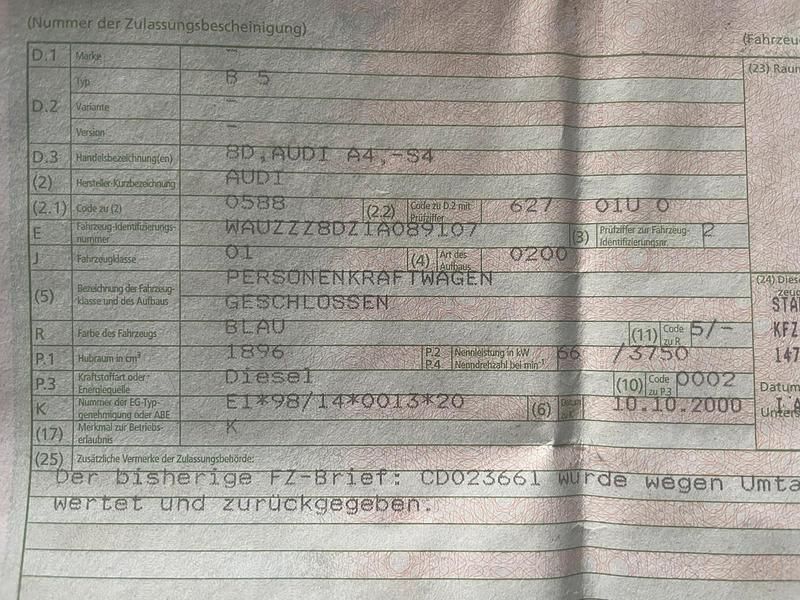 (Nummer der Zulassungsbescheinigung)
(Fahrzeu
D.1 Marke –
(23) Raum
D.2 Typ B 5
Variante –
Version –
D.3 Handelsbezeichnung(en) 8D,AUDI A4,-S4
(2) Hersteller-Kurzbezeichnung AUDI
(2.1) Code zu (2) 0588 (2.2) Code zu D.2 mit Prüfziffer 627 01U 0
E Fahrzeug-Identifizierungs-nummer WAUZZZ8DZ1A089107 (3) Prüfziffer zur Fahrzeug-Identifizierungsnr. 2
J Fahrzeugklasse 01 (4) Art des Aufbaus 0200
(5) Bezeichnung der Fahrzeug-klasse und des Aufbaus PERSONENKRAFTWAGEN
GESCHLOSSEN
(24) Diese
zeug
STA
R Farbe des Fahrzeugs BLAU (11) Code zu R 5/–
KFZ
P.1 Hubraum in cm³ 1896 P.2 P.4 Nennleistung in kW Nenndrehzahl bei min⁻¹ 66 /3750
147
P.3 Kraftstoffart oder Energiequelle Diesel (10) Code zu P.3 0002
Datum
K Nummer der EG-Typ-genehmigung oder ABE E1*98/14*0013*20 (6) Datum zu K 10.10.2000
Unters
(17) Merkmal zur Betriebs-erlaubnis K
(25) Zusätzliche Vermerke der Zulassungsbehörde:
Der bisherige FZ-Brief: CD023661 wurde wegen Umta
wertet und zurückgegeben.